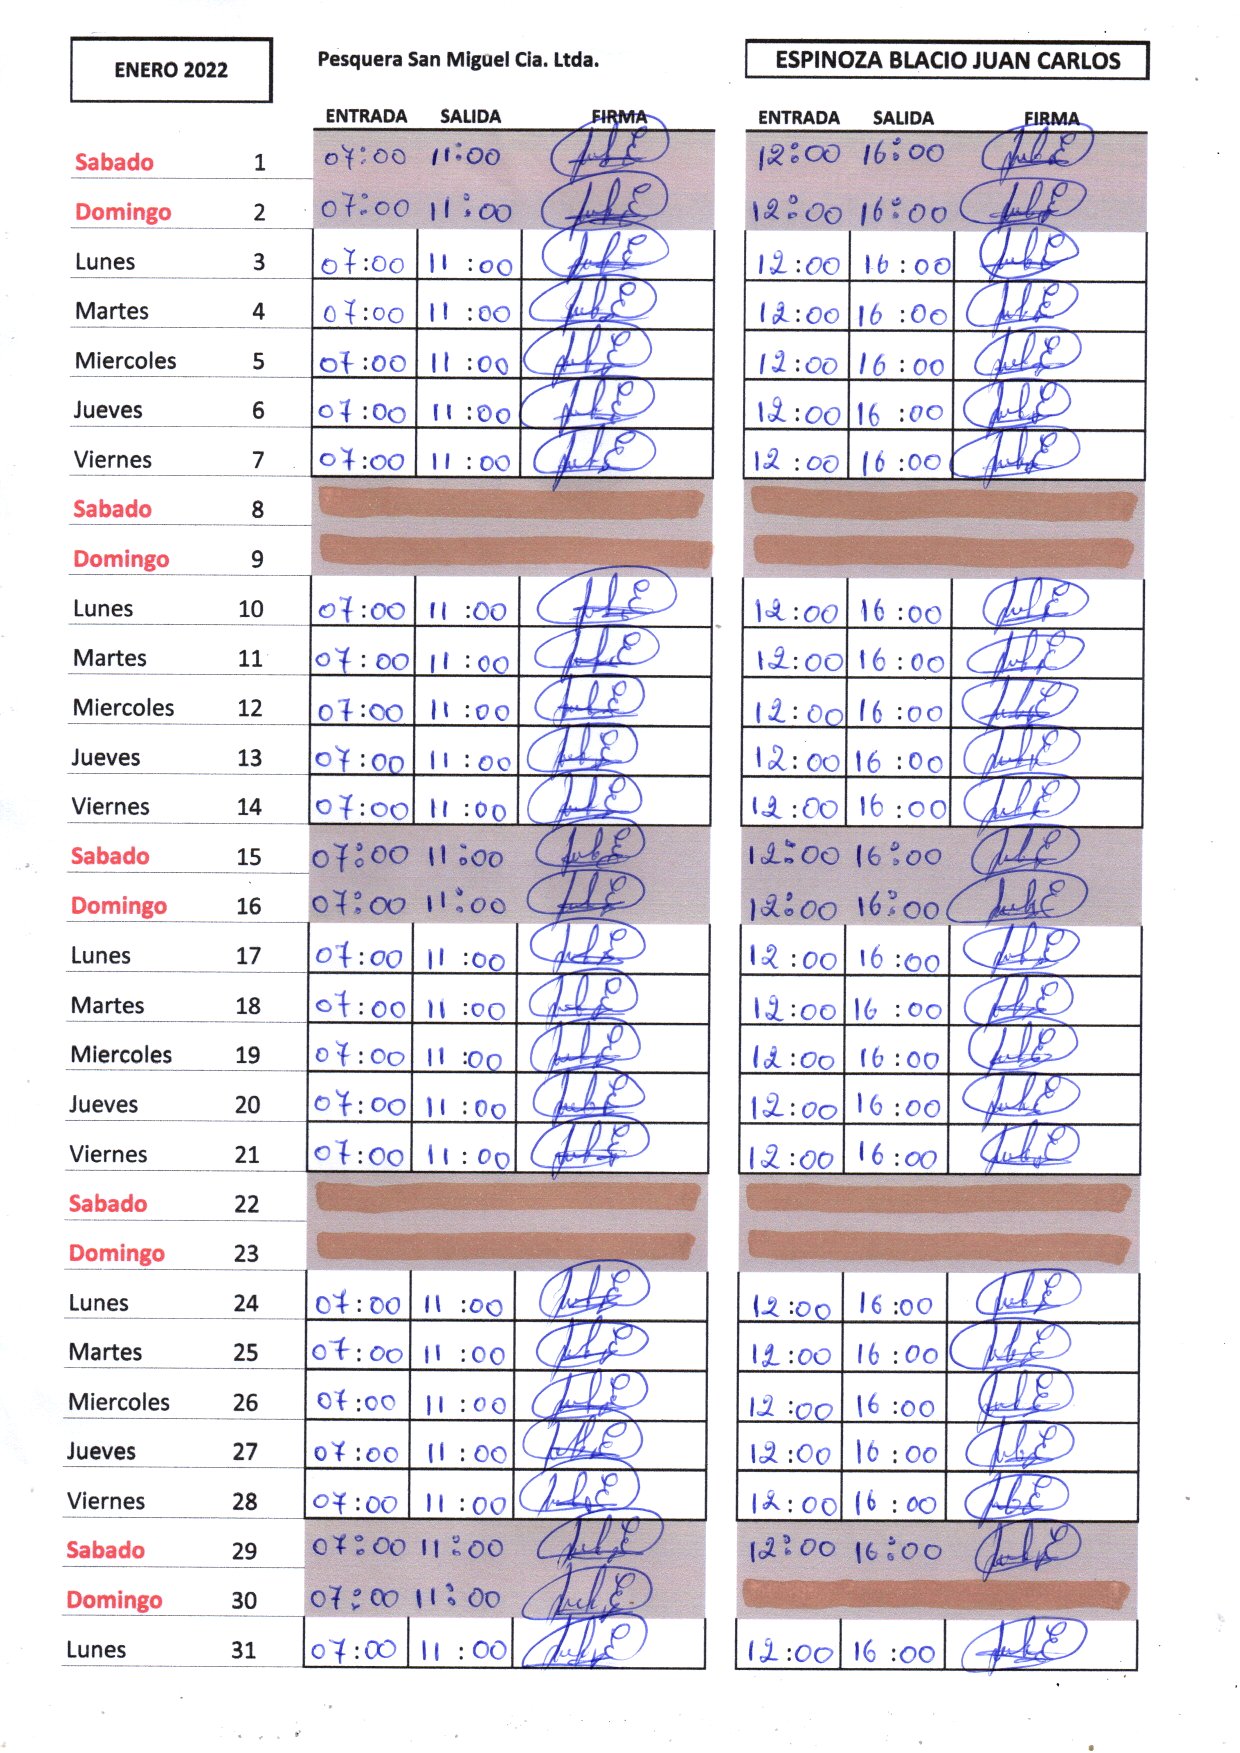 ENERO 2022 Pesquera San Miguel Cia. Ltda. ESPINOZA BLACIO JUAN CARLOS
ENTRADA SALIDA FIRMA ENTRADA SALIDA FIRMA
Sabado 1 07:00 11:00 12:00 16:00
Domingo 2 07:00 11:00 12:00 16:00
Lunes 3 07:00 11:00 12:00 16:00
Martes 4 07:00 11:00 12:00 16:00
Miercoles 5 07:00 11:00 12:00 16:00
Jueves 6 07:00 11:00 12:00 16:00
Viernes 7 07:00 11:00 12:00 16:00
Sabado 8
Domingo 9
Lunes 10 07:00 11:00 12:00 16:00
Martes 11 07:00 11:00 12:00 16:00
Miercoles 12 07:00 11:00 12:00 16:00
Jueves 13 07:00 11:00 12:00 16:00
Viernes 14 07:00 11:00 12:00 16:00
Sabado 15 07:00 11:00 12:00 16:00
Domingo 16 07:00 11:00 12:00 16:00
Lunes 17 07:00 11:00 12:00 16:00
Martes 18 07:00 11:00 12:00 16:00
Miercoles 19 07:00 11:00 12:00 16:00
Jueves 20 07:00 11:00 12:00 16:00
Viernes 21 07:00 11:00 12:00 16:00
Sabado 22
Domingo 23
Lunes 24 07:00 11:00 12:00 16:00
Martes 25 07:00 11:00 12:00 16:00
Miercoles 26 07:00 11:00 12:00 16:00
Jueves 27 07:00 11:00 12:00 16:00
Viernes 28 07:00 11:00 12:00 16:00
Sabado 29 07:00 11:00 12:00 16:00
Domingo 30 07:00 11:00
Lunes 31 07:00 11:00 12:00 16:00